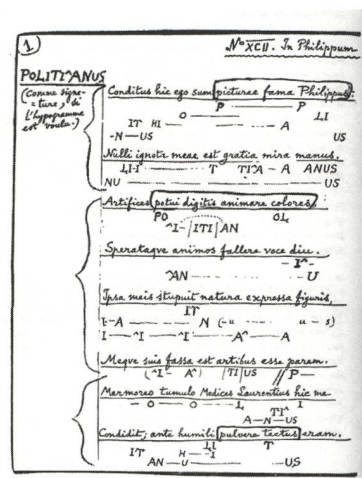 1
Nº XCII. In Philippum
POLITIANUS
(Comme signature, si l'hypogramme est voulu.)
Conditus hic ego sum picturae fama Philippus:
P P
O LI
IT HI A
-N-US US
Nulli ignota meae est gratia mira manus.
LI-I T TI^A - A ANUS
NU US
Artifices potui digitis animare colores
PO OL
^I- /ITI/ AN
Sperataque animos fallere voce diu.
- I^ -
^AN U
Ipsa meis stupuit natura expressa figuris,
IT
I-A N (-u u-s)
I ^I ^I A^ A
Meque suis fassa est artibus esse parem.
(^I- A^) /TI/US // P-
Marmoreo tumulo Medices Laurentius hic me
- O O L I
TI^
A-N-US
Condidit; ante humili pulvere tectus eram.
LI T
IT H I
AN-U US